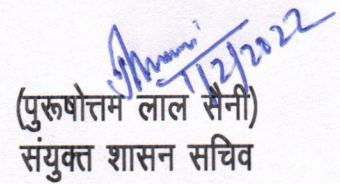 1/2/2022
(पुरूषोत्तम लाल सैनी)
संयुक्त शासन सचिव